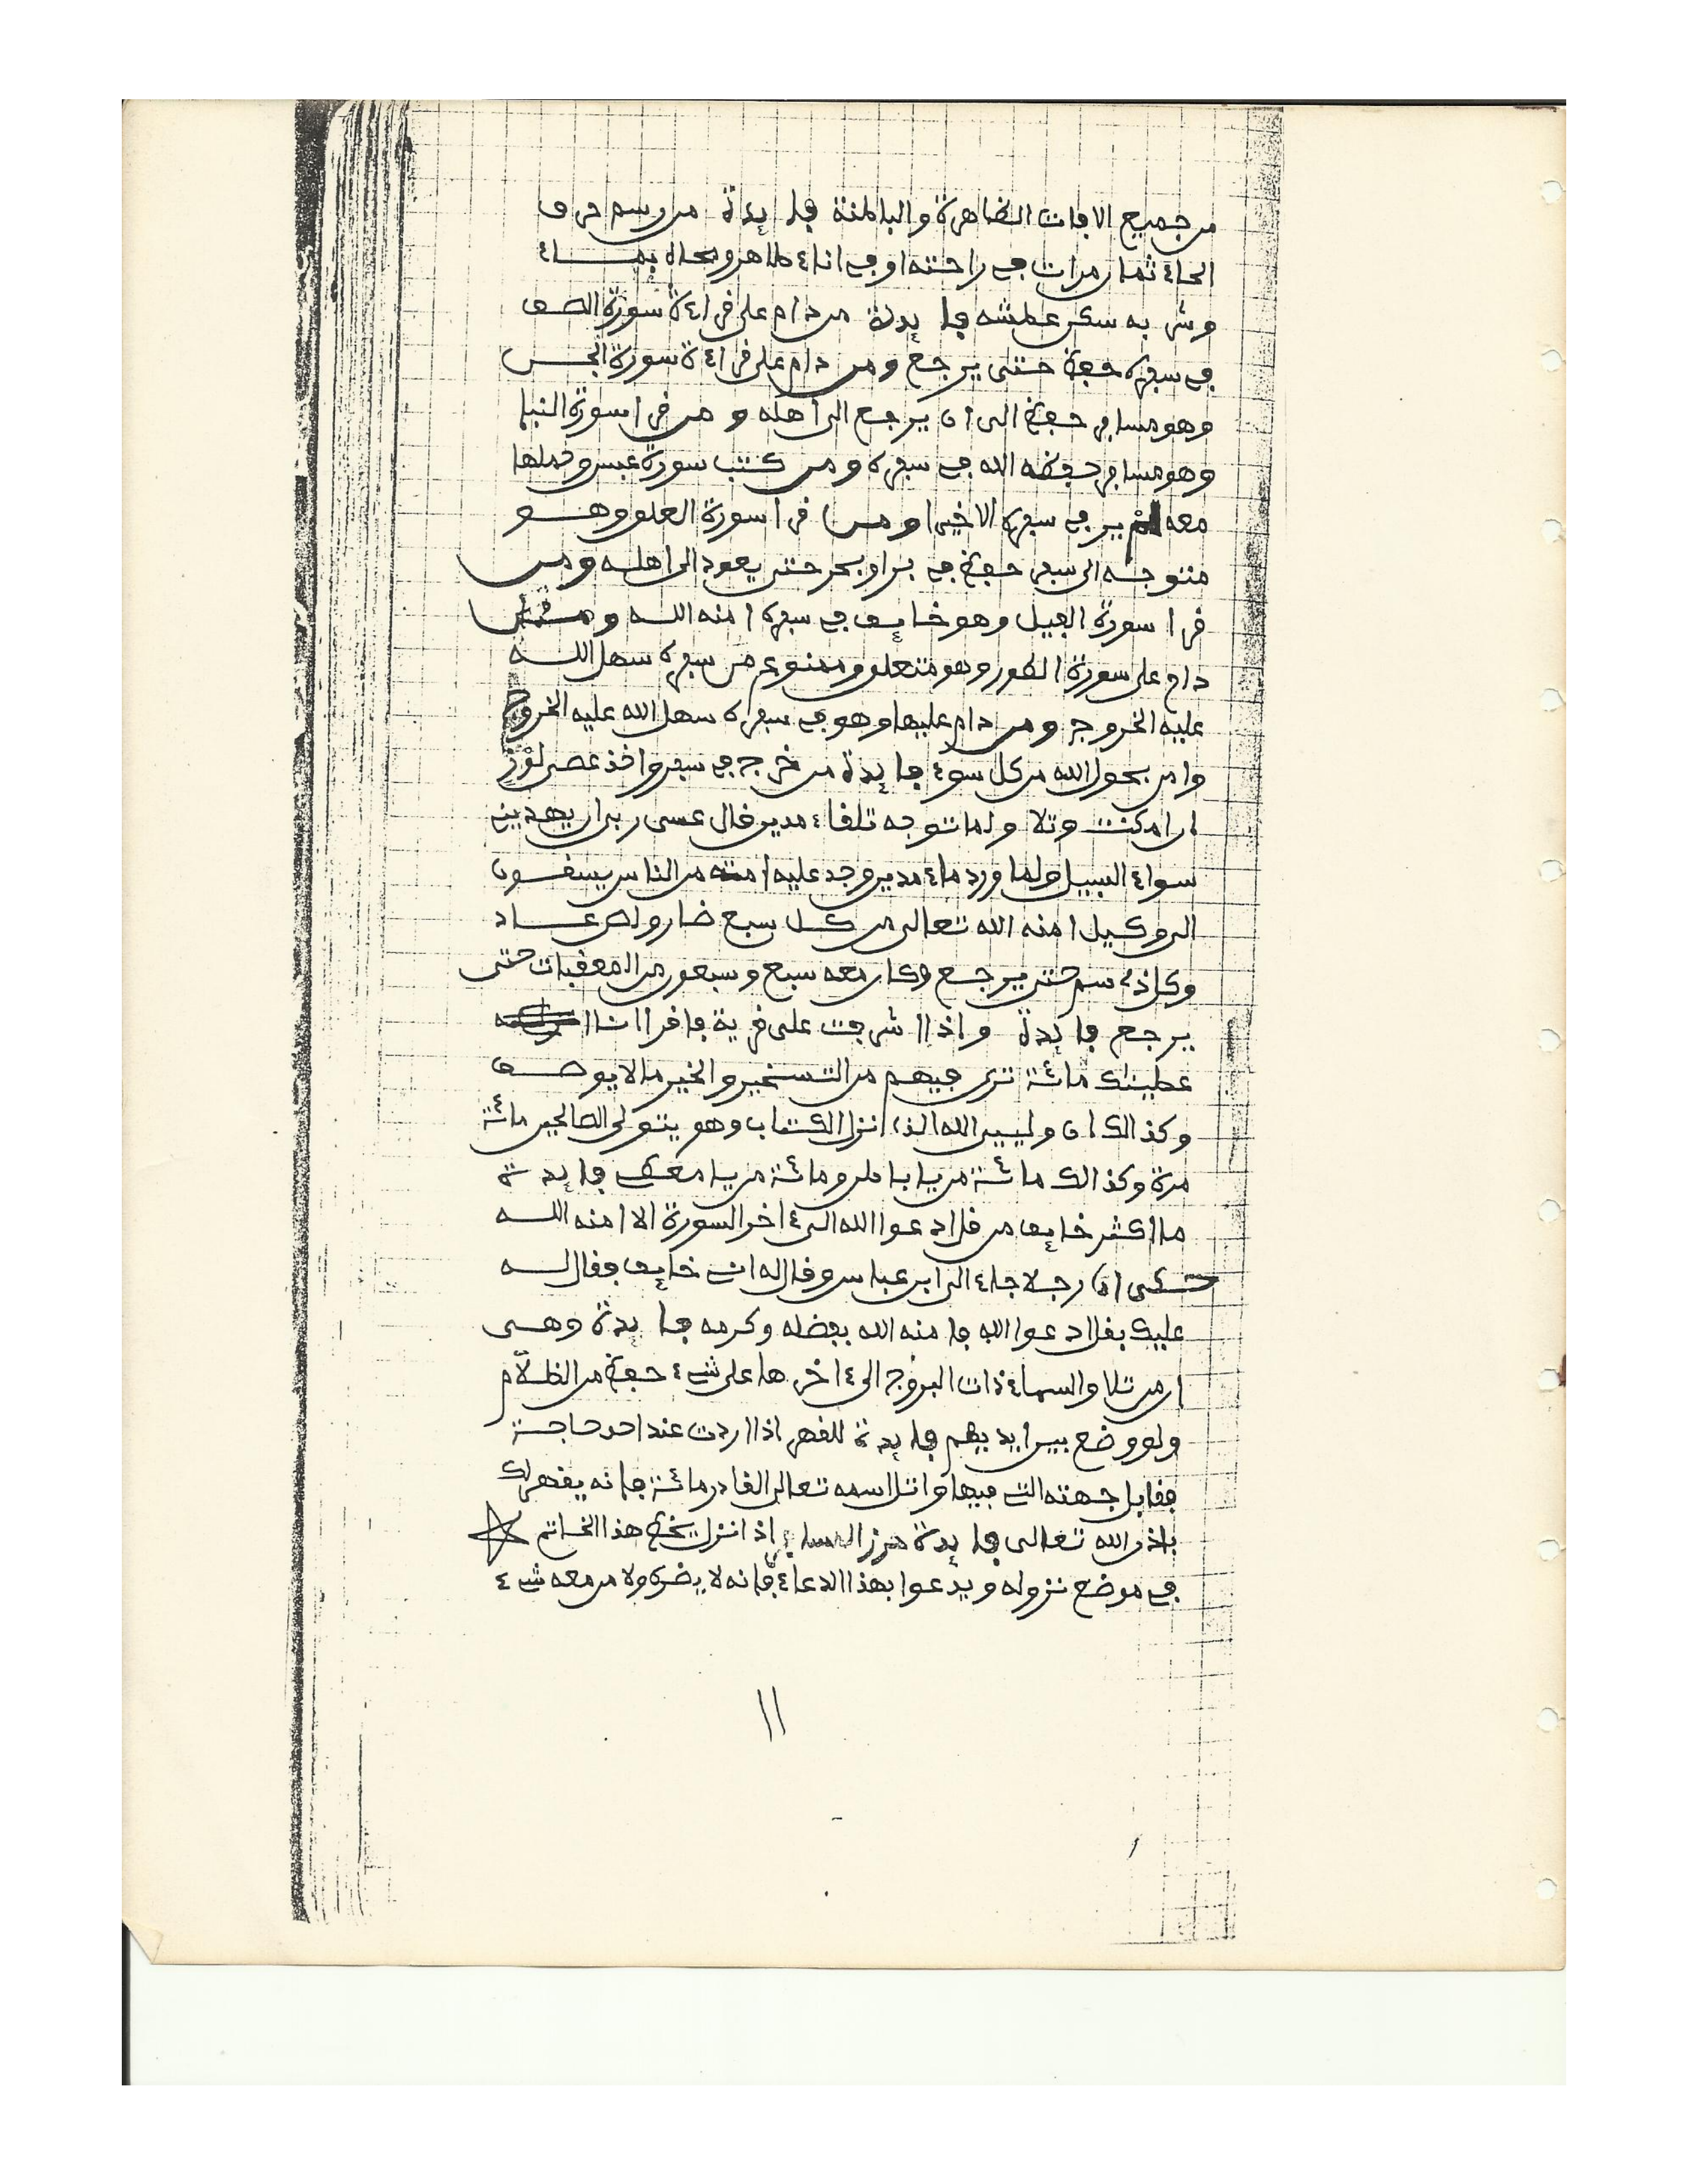 من جميع الافات الظاهرة والباطنة فايدة من رسم حرف
الحاء ثمان مرات في راحته او في اناء طاهر ومحاه بماء
وشربه سكن عطشه فايدة من دام على قراءة سورة الصف
في سفره حفظ حتى يرجع ومن دام على قراءة سورة الجن
وهو مسافر حفظ الى ان يرجع الى اهله و من قرا سورة النبا
وهو مسافر حفظه الله في سفره ومن كتب سورة عبس وحملها
معه لم ير في سفره الا خيرا ومن قرا سورة العلق وهو
متوجه الى سفر حفظ في بر او بحر حتى يعود الى اهله ومن
قرا سورة الفيل وهو خايف في سفره امنه الله ومن
دام على سورة الطور وهو متعلق وممنوع من سفره سهل الله
عليه الخروج ومن دام عليها وهو في سفره سهل الله عليه الخروج
وامن بحول الله من كل سوء فايدة من خرج في سفر واخذ عصى لوز
ان امكنت وتلا ولما توجه تلقاء مدين قال عسى ربي ان يهديني
سواء السبيل ولما ورد ماء مدين وجد عليه امة من الناس يسقون
الى وكيل امنه الله تعالى من كل سبع ضار ولص عاد
وكل ذي سم حتى يرجع وكان معه سبع وسبعون من المعقبات حتى
يرجع فايدة واذا اشرفت على قرية فاقرا انا
عطينك مائة ترى فيهم من التسخير والخير ما لا يوصف
وكذالك ان وليي الله الذي انزل الكتاب وهو يتولى الصالحين مائة
مرة وكذالك مائة من يا باطن ومائة من يا معطي فايدة
ما اكثر خايف من قل ادعوا الله الى ءاخر السورة الا امنه الله
حكى ان رجلا جاء الى ابن عباس وقال له اني خايف فقال له
عليك بقل ادعوا الله فامنه الله بفضله وكرمه فايدة وهي
ان من تلا والسماء ذات البروج الى ءاخرها على شيء حفظ من الظلام
ولو وضع بين ايديهم فايدة للقهر اذا اردت عند احد حاجة
فقابل جهته التي فيها واتل اسمه تعالى القادر مائة فانه يقهر لك
باذن الله تعالى فايدة حرز اذا نزل يخط هذا الخاتم
في موضع نزوله ويدعوا بهذا الدعاء فانه لا يضره ولا من معه شيء
11